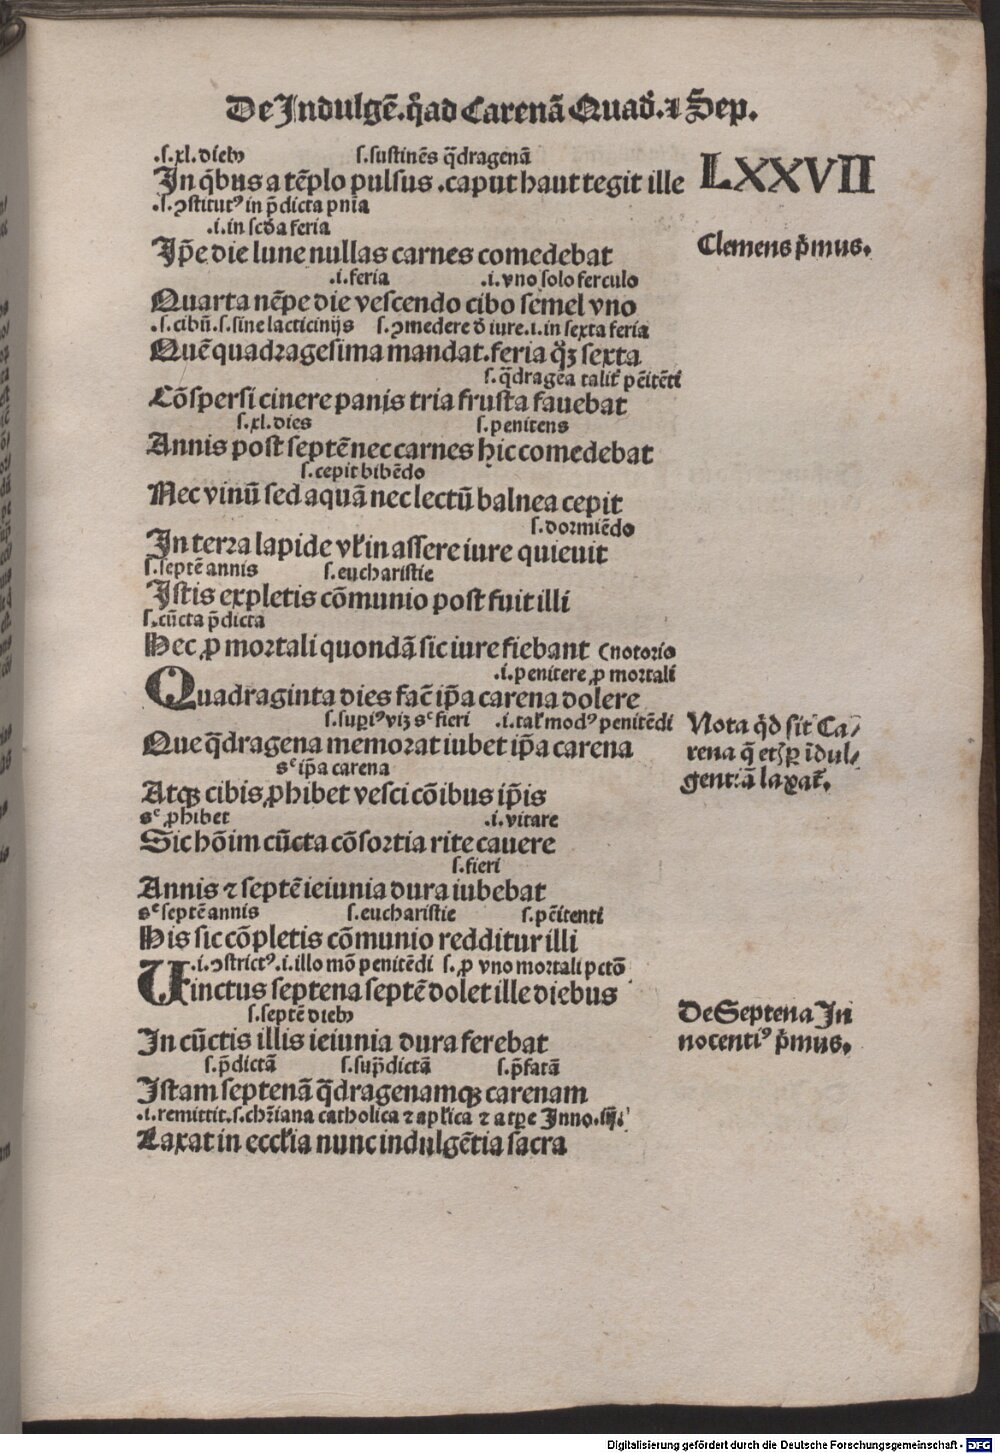 De Indulgē. q̄ad Carenā Quad̄. ⁊ Sep.
LXXVII
.s.xl.dieb⁹ s.sustinēs q̄dragenā
In q̄bus a tēplo pulsus .caput haut tegit ille
.s.ꝯstitut⁹ in p̄dicta pn̄ia
.i.in scd̄a feria
Ip̄e die lune nullas carnes comedebat
Clemens p̄mus.
.i.feria .i.vno solo ferculo
Quarta nēpe die vescendo cibo semel vno
.s.cibū.s.sine lacticinijs s.ꝯmedere d̄ iure.i.in sexta feria
Quē quadragesima mandat.feria q̄ꝫ sexta
s.q̄dragēa talit̄ pēitēti
Cōspersi cinere panis tria frusta fauebat
s.xl.dies s.penitens
Annis post septē nec carnes hic comedebat
s.cepit bibēdo
Nec vinū sed aquā nec lectū balnea cepit
s.dormiēdo
In terra lapide vl̄ in assere iure quieuit
s.septē annis s.eucharistie
Istis expletis cōmunio post fuit illi
s.cūcta p̄dicta
Hec ꝓ mortali quondā sic iure fiebant (notorio
.i.penitere ꝓ mortali
Quadraginta dies fac̄ ip̄a carena dolere
s.suꝑi⁹ viꝫ sᶜ fieri .i.tal̄ mod⁹ penitēdi
Que q̄dragena memorat iubet ip̄a carena
Nota q̄d sit Ca⸗
rena q̄ etꝫ ꝑ īdul⸗
gentiā laxat̄.
sᶜ ip̄a carena
Atqꝫ cibis ꝓhibet vesci cōibus ip̄is
sᶜ ꝓhibet .i.vitare
Sic hōim cūcta cōsortia rite cauere
s.fieri
Annis ⁊ septē ieiunia dura iubebat
sᶜ septē annis s.eucharistie s.pēitenti
His sic cōpletis cōmunio redditur illi
.i.ꝯstrict⁹.i.illo mō penitēdi s.ꝓ vno mortali pctō
Uinctus septena septē dolet ille diebus
De Septena In
nocenti⁹ p̄mus.
s.septē dieb⁹
In cūctis illis ieiunia dura ferebat
s.p̄dictā s.sup̄dictā s.p̄fatā
Istam septenā q̄dragenamqꝫ carenam
.i.remittit.s.chr̄iana catholica ⁊ apl̄ica ⁊ a tꝑe Inno.iij.
Laxat in eccl̄ia nunc indulgētia sacra
Digitalisierung gefördert durch die Deutsche Forschungsgemeinschaft - DFG